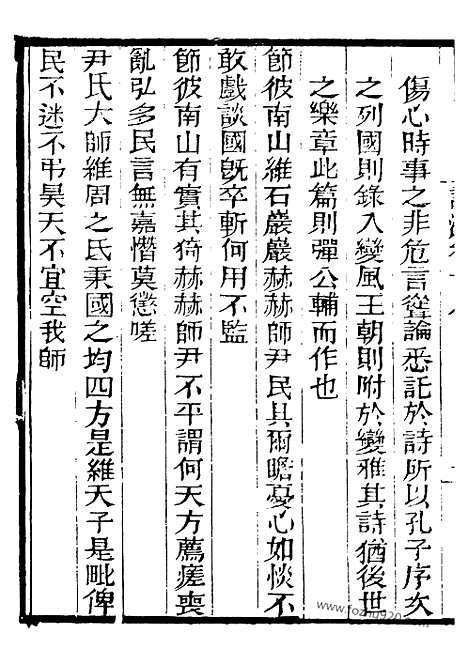 傷心時事之非危言聳論悉託於詩所以孔子序次
之列國則錄入變風王朝則附於變雅其詩猶後世
之樂章此篇則彈公輔而作也
節彼南山維石巖巖赫赫師尹民具爾瞻憂心如惔不
敢戲談國旣卒斬何用不監
節彼南山有實其猗赫赫師尹不平謂何天方薦瘥喪
亂弘多民言無嘉憯莫懲嗟
尹氏大師維周之氏秉國之均四方是維天子是毗俾
民不迷不弔昊天不宜空我師
www.fozhu920.com